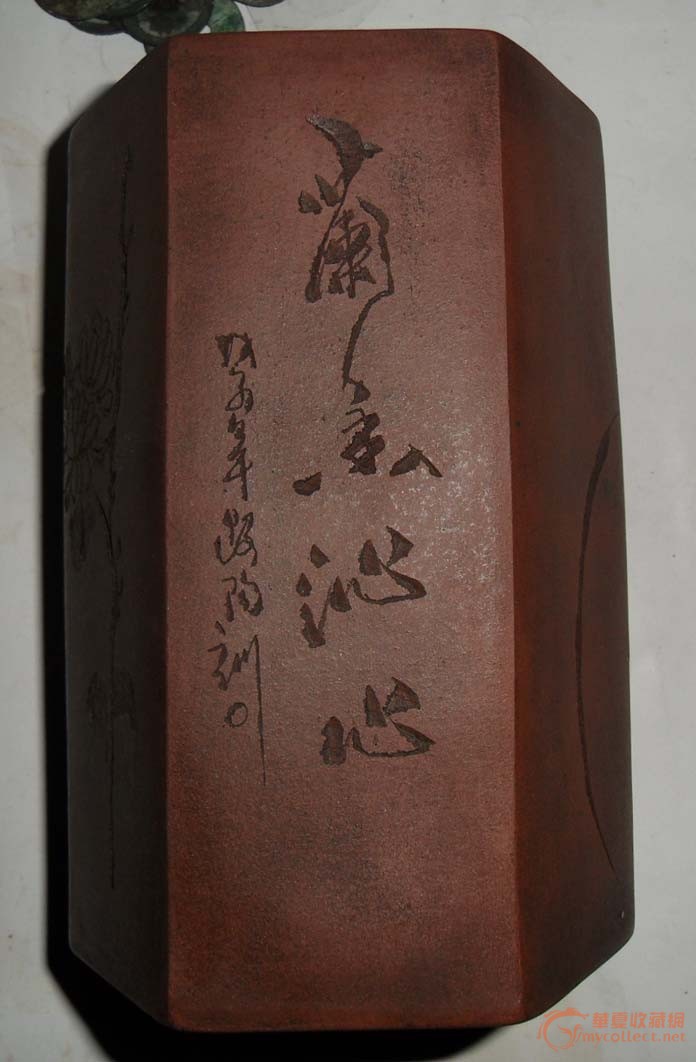 蘭香沁心
戊子年
華夏收藏網
mycollect.net